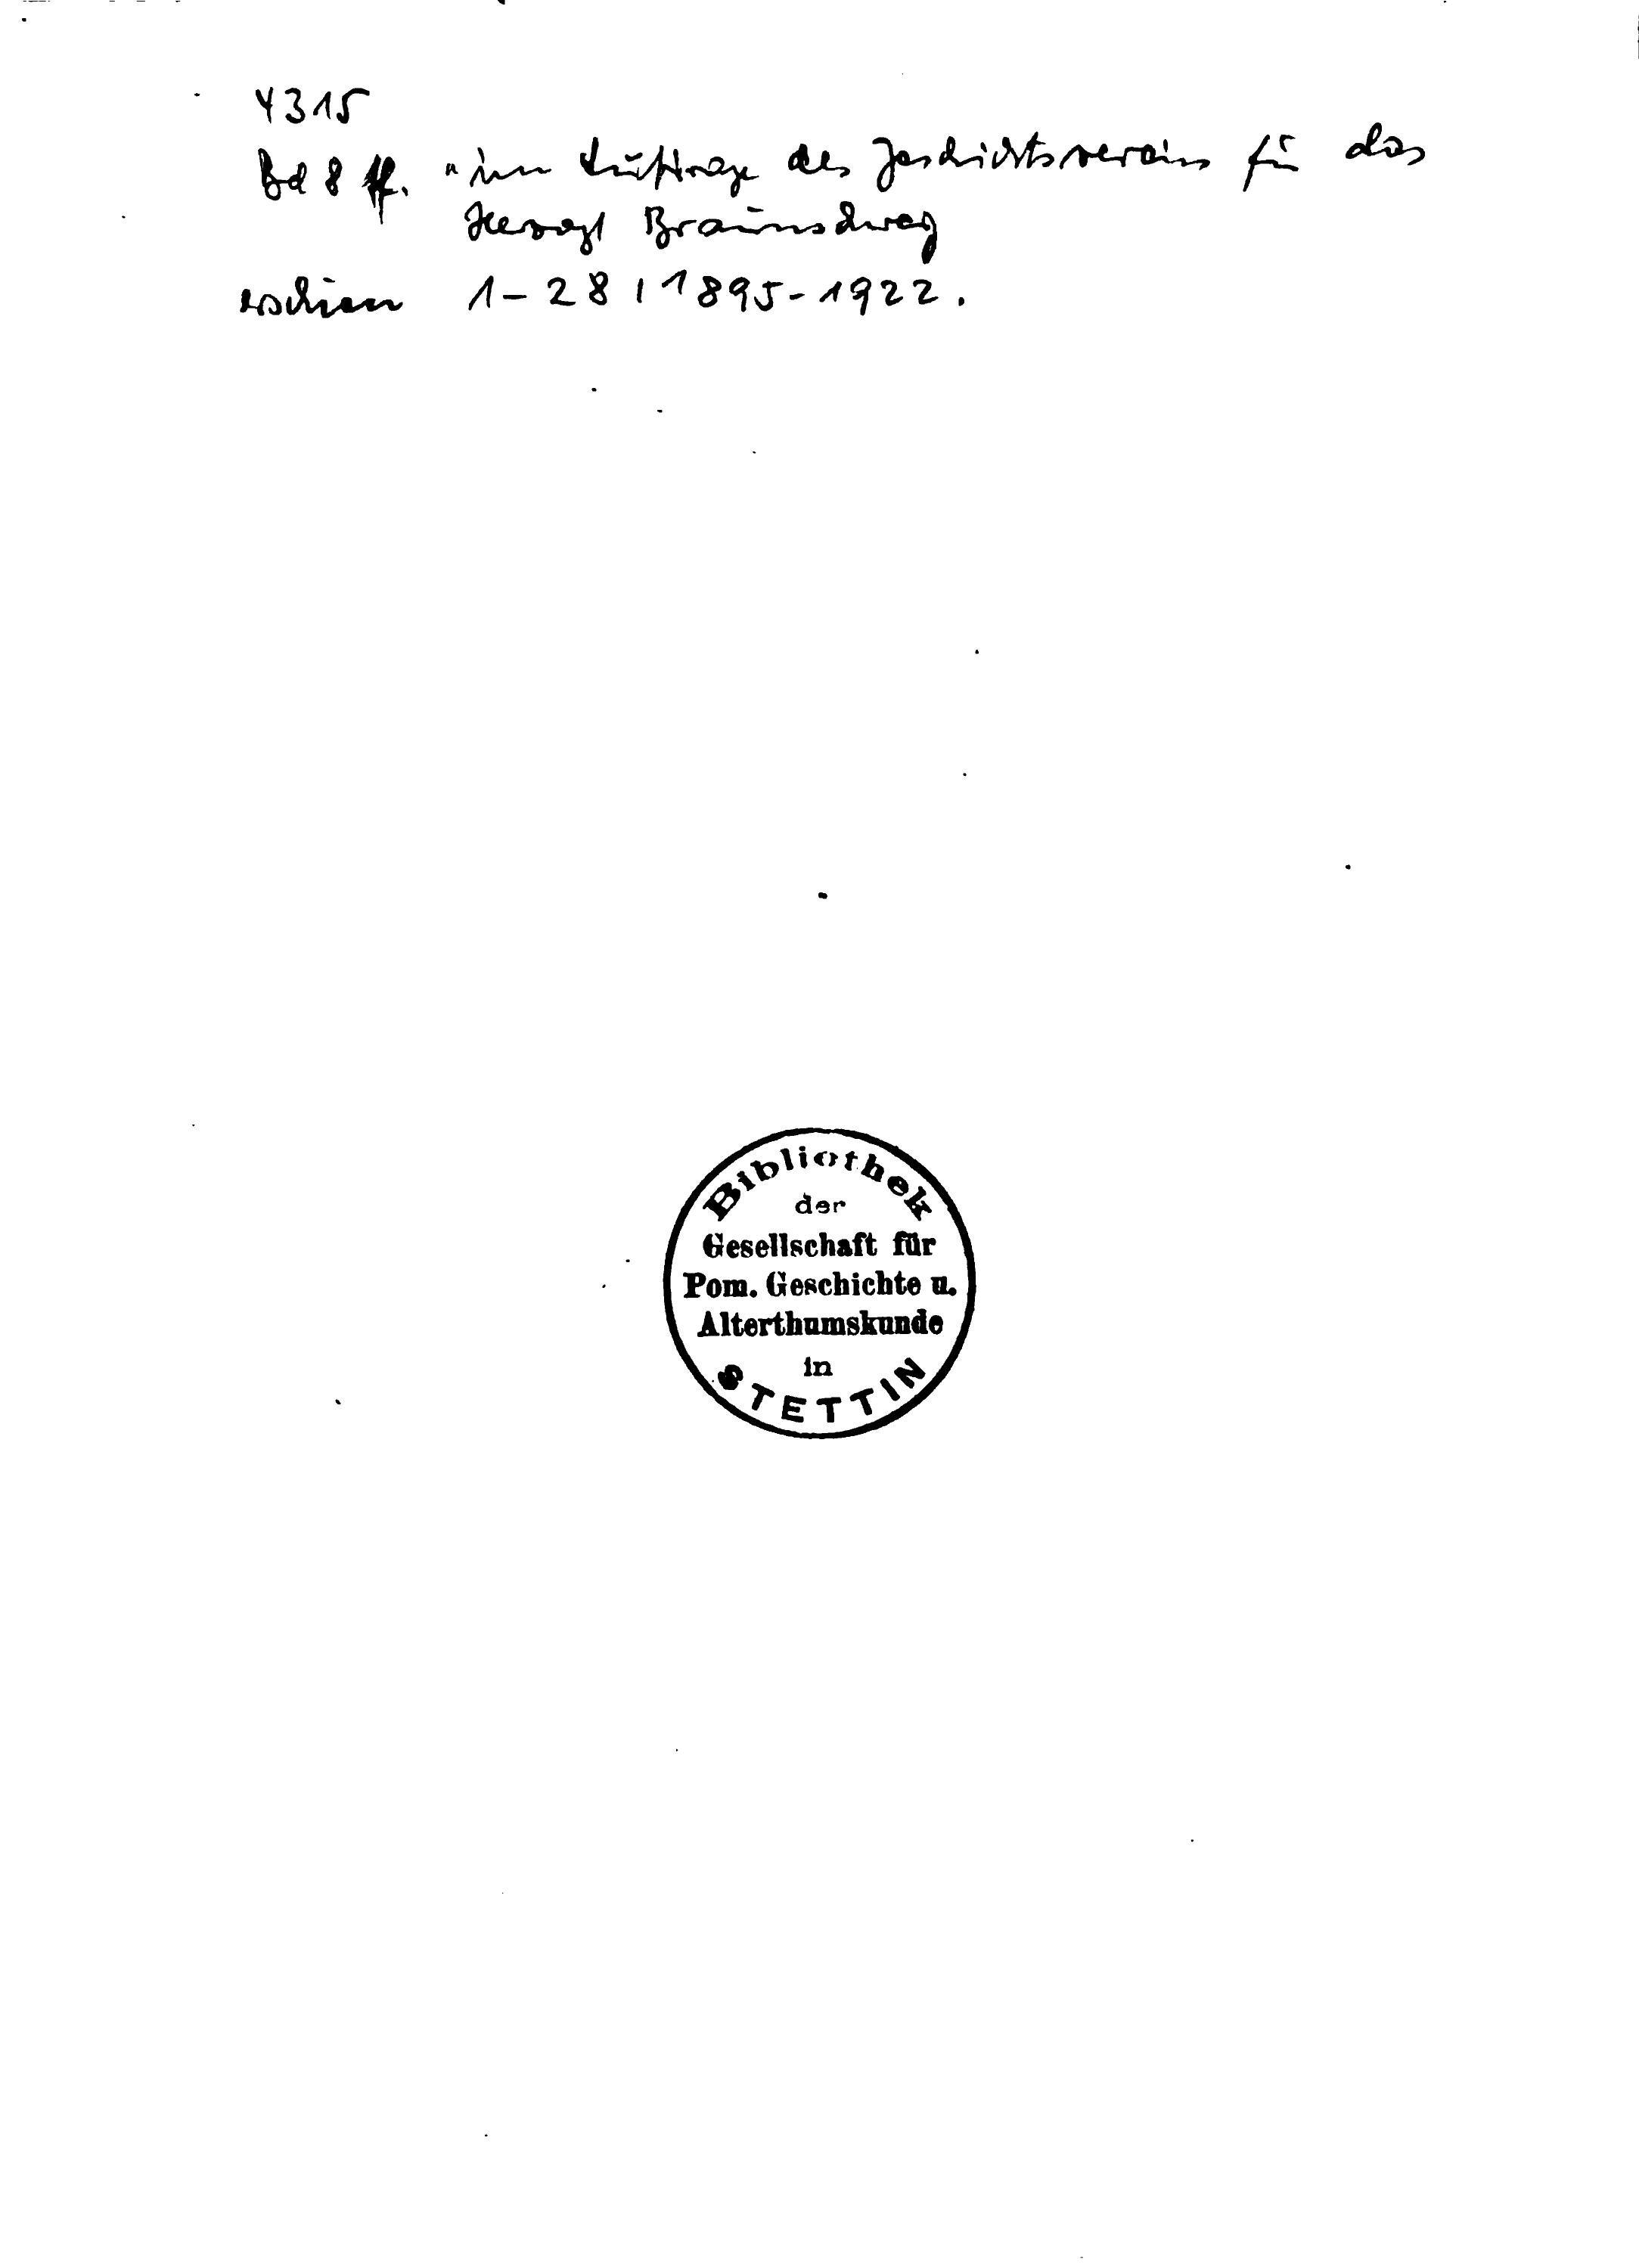 4315
Bd 8 ff. "im Auftrage des Geschichtsvereins für das
Herzogt Braunschweig
erschien 1-28, 1895-1922.
Bibliothek
der
Gesellschaft für
Pom. Geschichte u.
Alterthumskunde
in
STETTIN